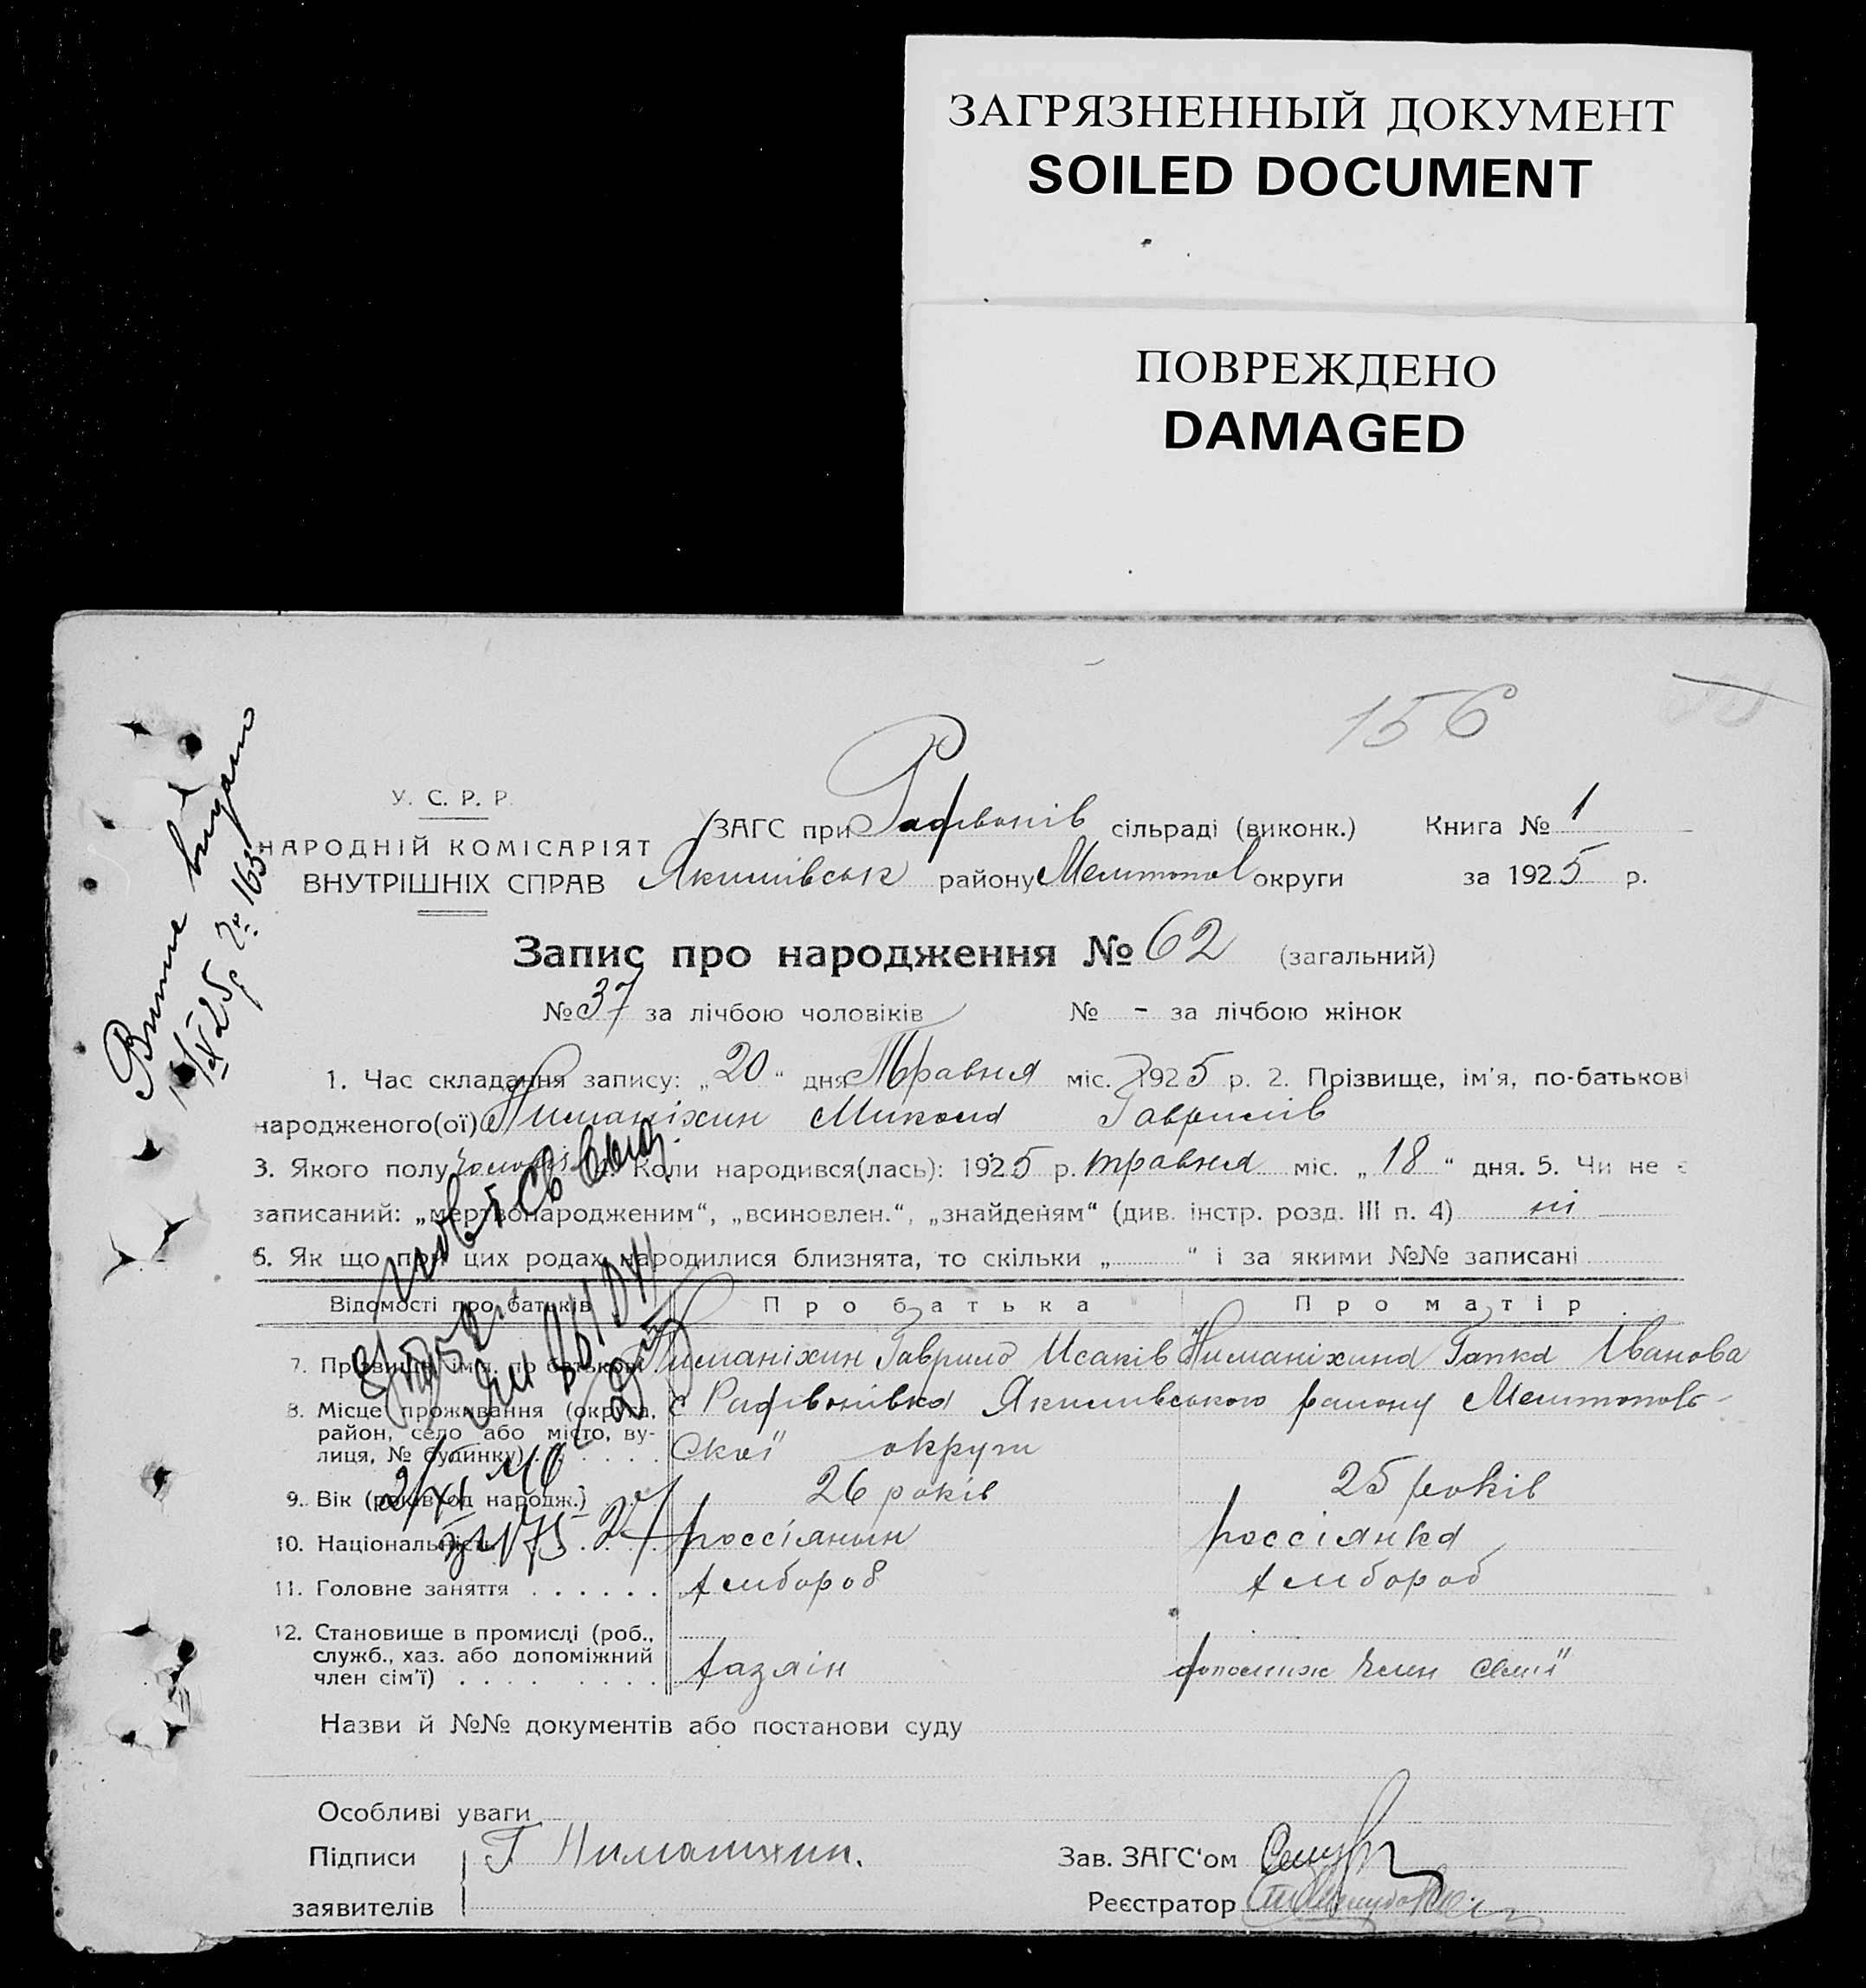 ЗАГРЯЗНЕННЫЙ ДОКУМЕНТ
SOILED DOCUMENT
ПОВРЕЖДЕНО
DAMAGED
156
У. С. Р. Р.
НАРОДНІЙ КОМІСАРІЯТ
ВНУТРІШНІХ СПРАВ
ЗАГС при сільраді (виконк.) Книга № 1
Якимівськ району Мелитопол округи за 1925 р.
Запис про народження № 62 (загальний)
№ 37 за лічбою чоловіків № - за лічбою жінок
1. Час складання запису: „20" дня Травня міс. 1925 р. 2. Прізвище, ім'я, по-батькові
народженого(ої) Ниманіхин Микола Гаврилів
3. Якого полу Коли народився(лась): 1925 р. травня міс. „18" дня. 5. Чи не є
записаний: „мертвонародженим", „всиновлен.", „знайденям" (див. інстр. розд. III п. 4) ні
6. Як що при цих родах народилися близнята, то скільки „ " і за якими №№ записані
Відомості про батьків Про батька Про матір
7. Прізвище, ім'я, по батькові Ниманіхин Гаврило Исаків Ниманіхина Гапка Іванова
8. Місце проживання (округа, район, село або місто, вулиця, № будинку) с Якимівського району Мелитополь-
ской округи
9. Вік (років од народж.) 26 років 25 років
10. Національність россіянин россіянка
11. Головне заняття хлібороб хлібороб
12. Становище в промислі (роб., служб., хаз. або допоміжний член сім'ї) хазяін допоміж член семії
Назви й №№ документів або постанови суду
Особливі уваги
Підписи Г Ниманихин. Зав. ЗАГС'ом
заявителів Реєстратор